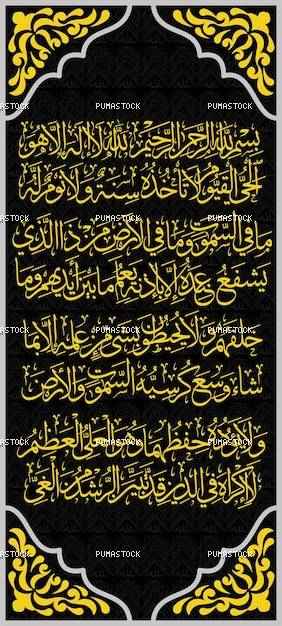 PUMASTOCK PUMASTOCK
PUMASTOCK PUMASTOCK
بسم الله الرحمن الرحيم الله لا إله إلا هو
الحي القيوم لا تأخذه سنة ولا نوم له
PUMASTOCK PUMASTOCK
ما في السموت وما في الأرض من ذا الذي
يشفع عنده إلا بإذنه يعلم ما بين أيديهم وما
PUMASTOCK PUMASTOCK
خلفهم ولا يحيطون بشيء من علمه إلا بما
شاء وسع كرسيه السموت والأرض
PUMASTOCK PUMASTOCK
ولا يؤده حفظهما وهو العلي العظيم
لا إكراه في الدين قد تبين الرشد من الغي
PUMASTOCK PUMASTOCK